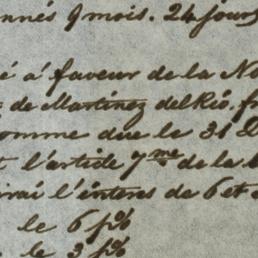 onnés 9 mois. 24 jours
é á faveur de la No
de Martinez del Rio, fr
omme due le 31 D
t l'article 7me de la
irai l'interes de 6 et
le 6 p%
le 3 p%